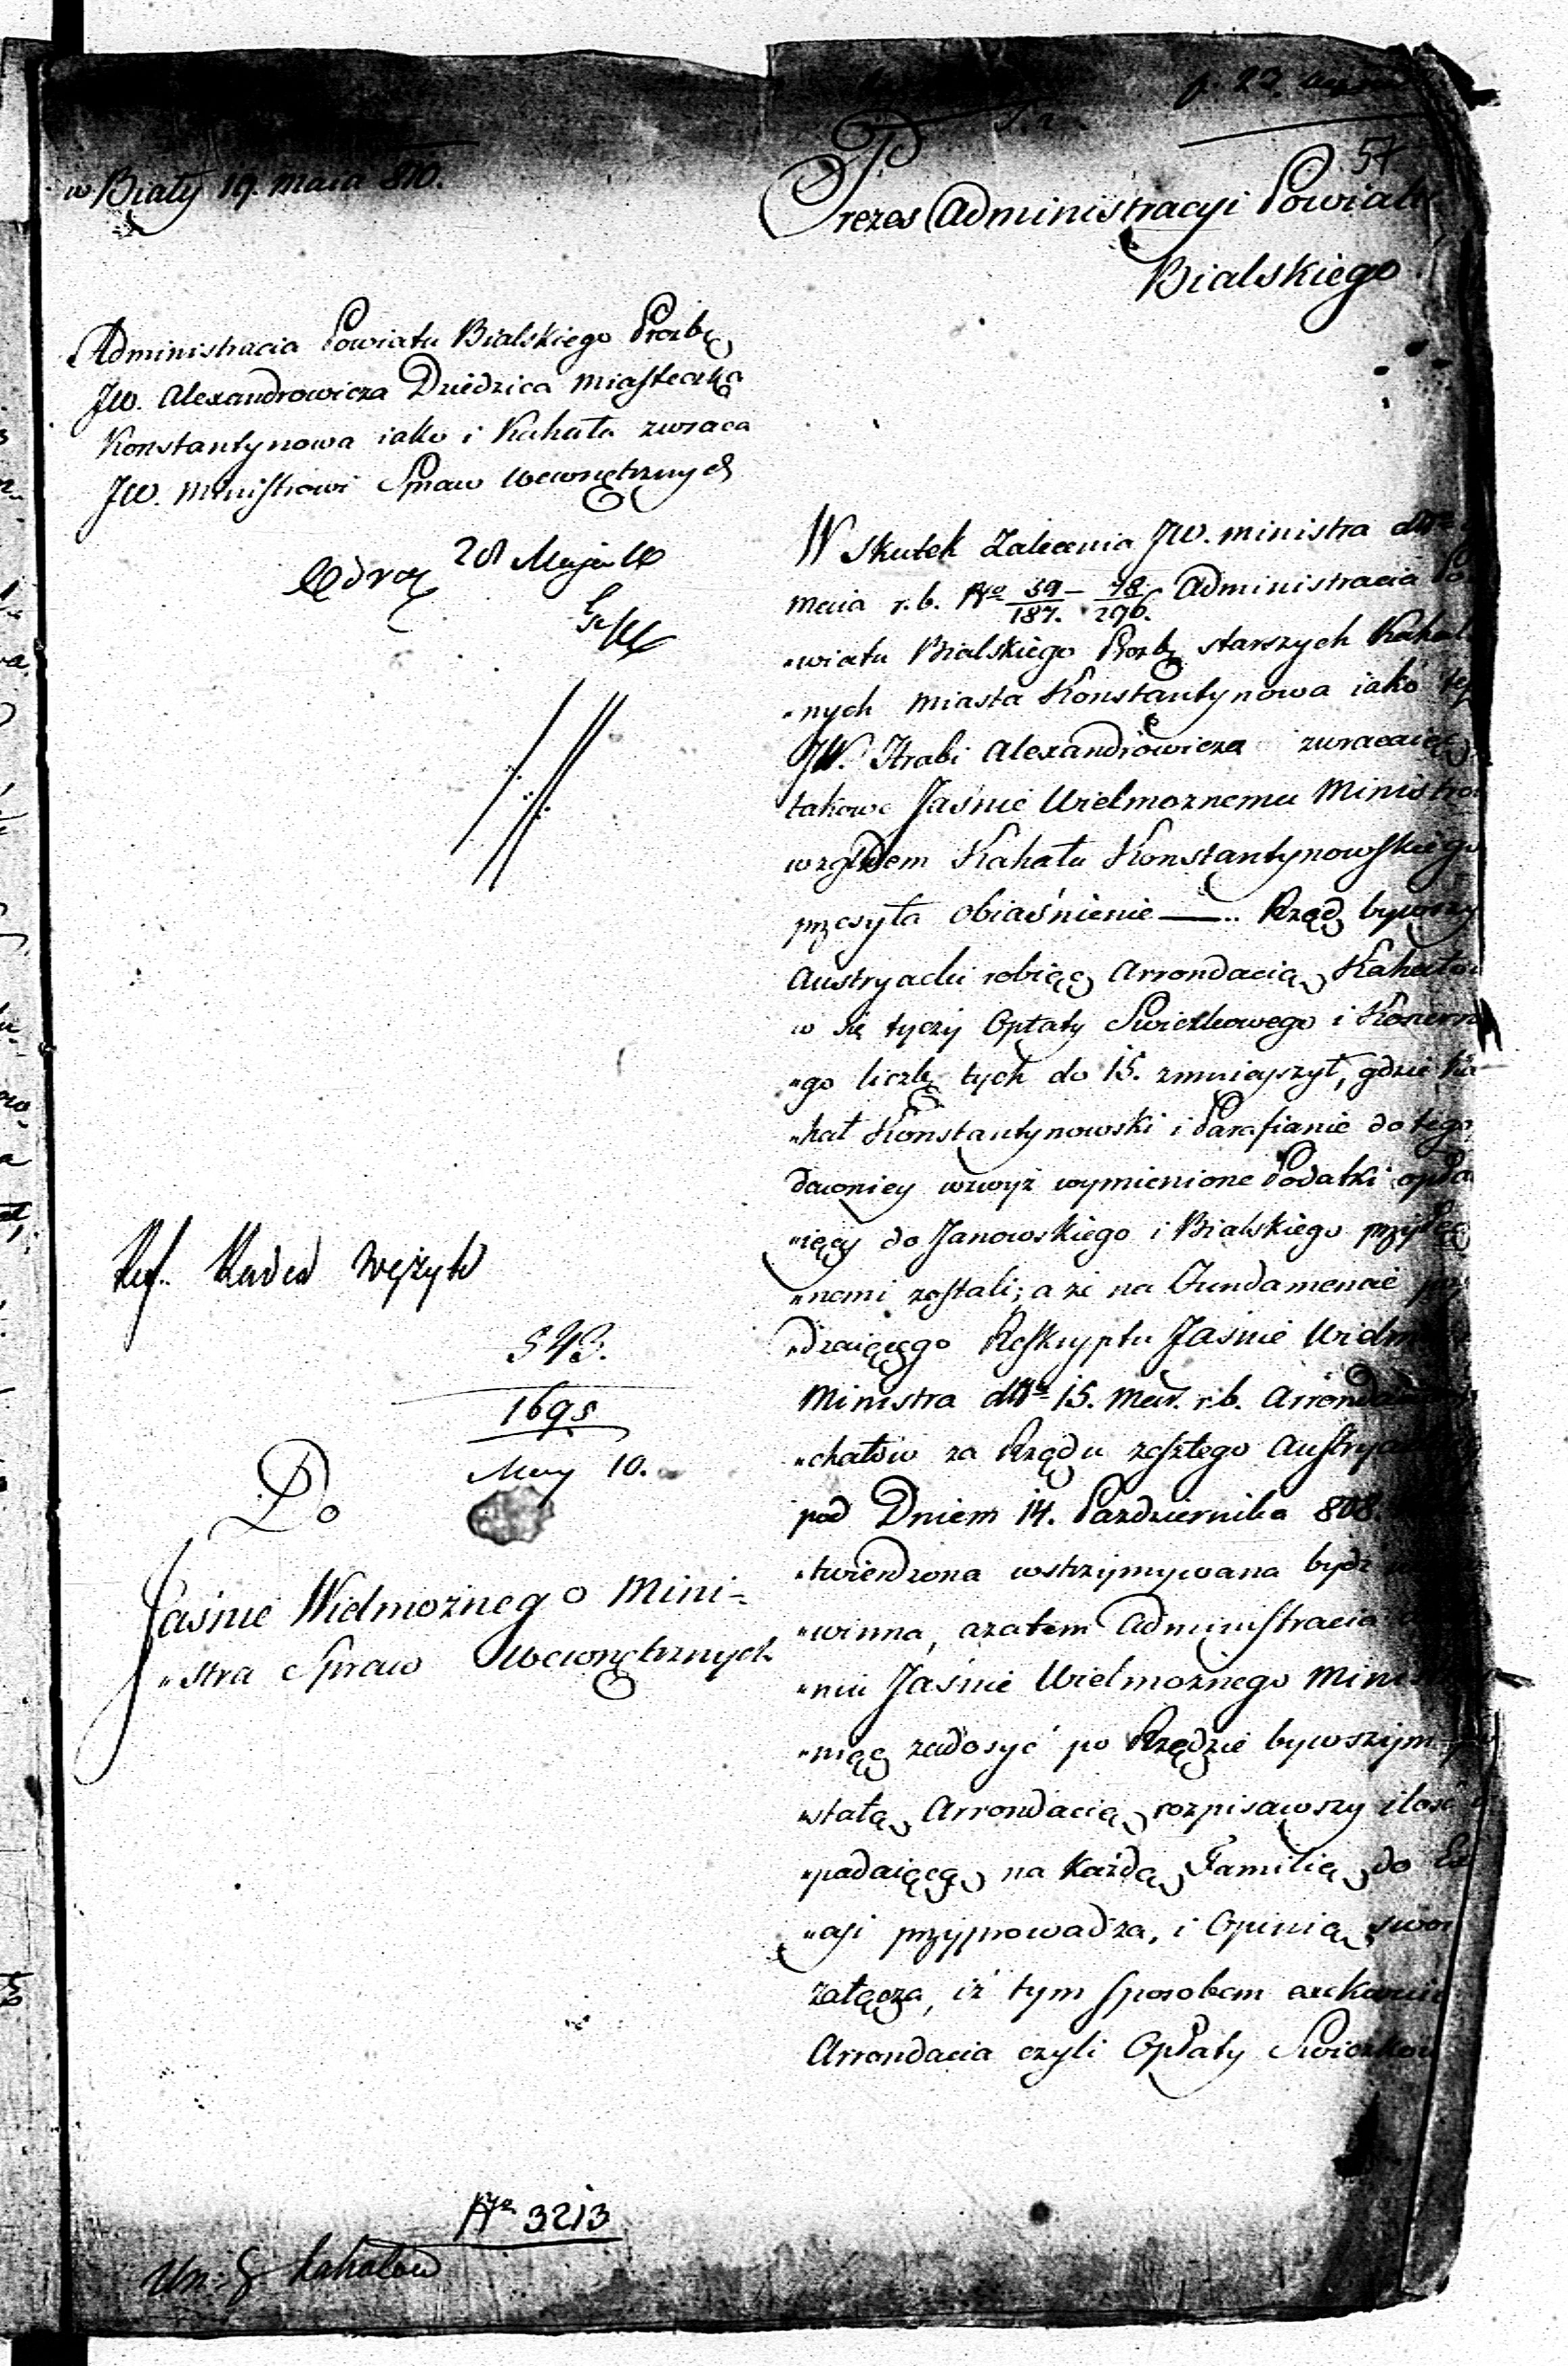 57
w Biały 19. maia 810.
Prezes Administracyi Powiatu
Bialskiego
Administracia Powiatu Bialskiego Prozbę
JW. Alexandrowicza Dziedzica miasteczka
Konstantynowa iako i Kahału zwraca
JW. Ministrowi Spraw Wewnętrznych
28 Maja
Ref. Radca Wężyk
543.
1695
May 10.
Do
Jaśnie Wielmożnego Mini-
„stra Spraw Wewnętrznych
No 3213
Kahałow
W skutek Zalecenia JW. ministra dtto
maia r. b. No 59/187. – 78/296. Administracia Po
„wiatu Bialskiego Prozbę starszych Kahal
„nych miasta Konstantynowa iako też
JW. Hrabi Alexandrowicza zwracaiąc
takowe Jaśnie Wielmoznemu Ministro
względem Kahału Konstantynowskiego
przesyła obiaśnienie —. Rząd bywszy
Austryacki robiąc Arrondacią Kahałow
w się tyczy Opłaty Swieczkowego i Koszern
„go liczbę tych do 15. zmnieyszył, gdzie Ka
„hał Konstantynowski i Parafianie do tego
dawniey wzwyż wymienione Podatki opła
„iący do Janowskiego i Bialskiego przyłącz
„nemi zostali; a że na Fundamencie
„dzaiącego Reskryptu Jaśnie Wielm
Ministra dtto 15. Mar. r. b. Arrondacia
„chałow za Rządu zeszłego Austryac
pod Dniem 14. Pazdziernika 808.
„twierdzona wstrzymywana bydz
„winna, azatem Administracia
„niu Jaśnie Wielmożnego Minis
„niąc zadosyć po Rządzie bywszym
„stałą Arrondacią rozpisawszy ilość
„padaiącą na Każdą Familią do Ex
„cyi przyprowadza, i Opinią swoi
załącza, iż tym sposobem
Arrondacia czyli Opłaty Swieczkow